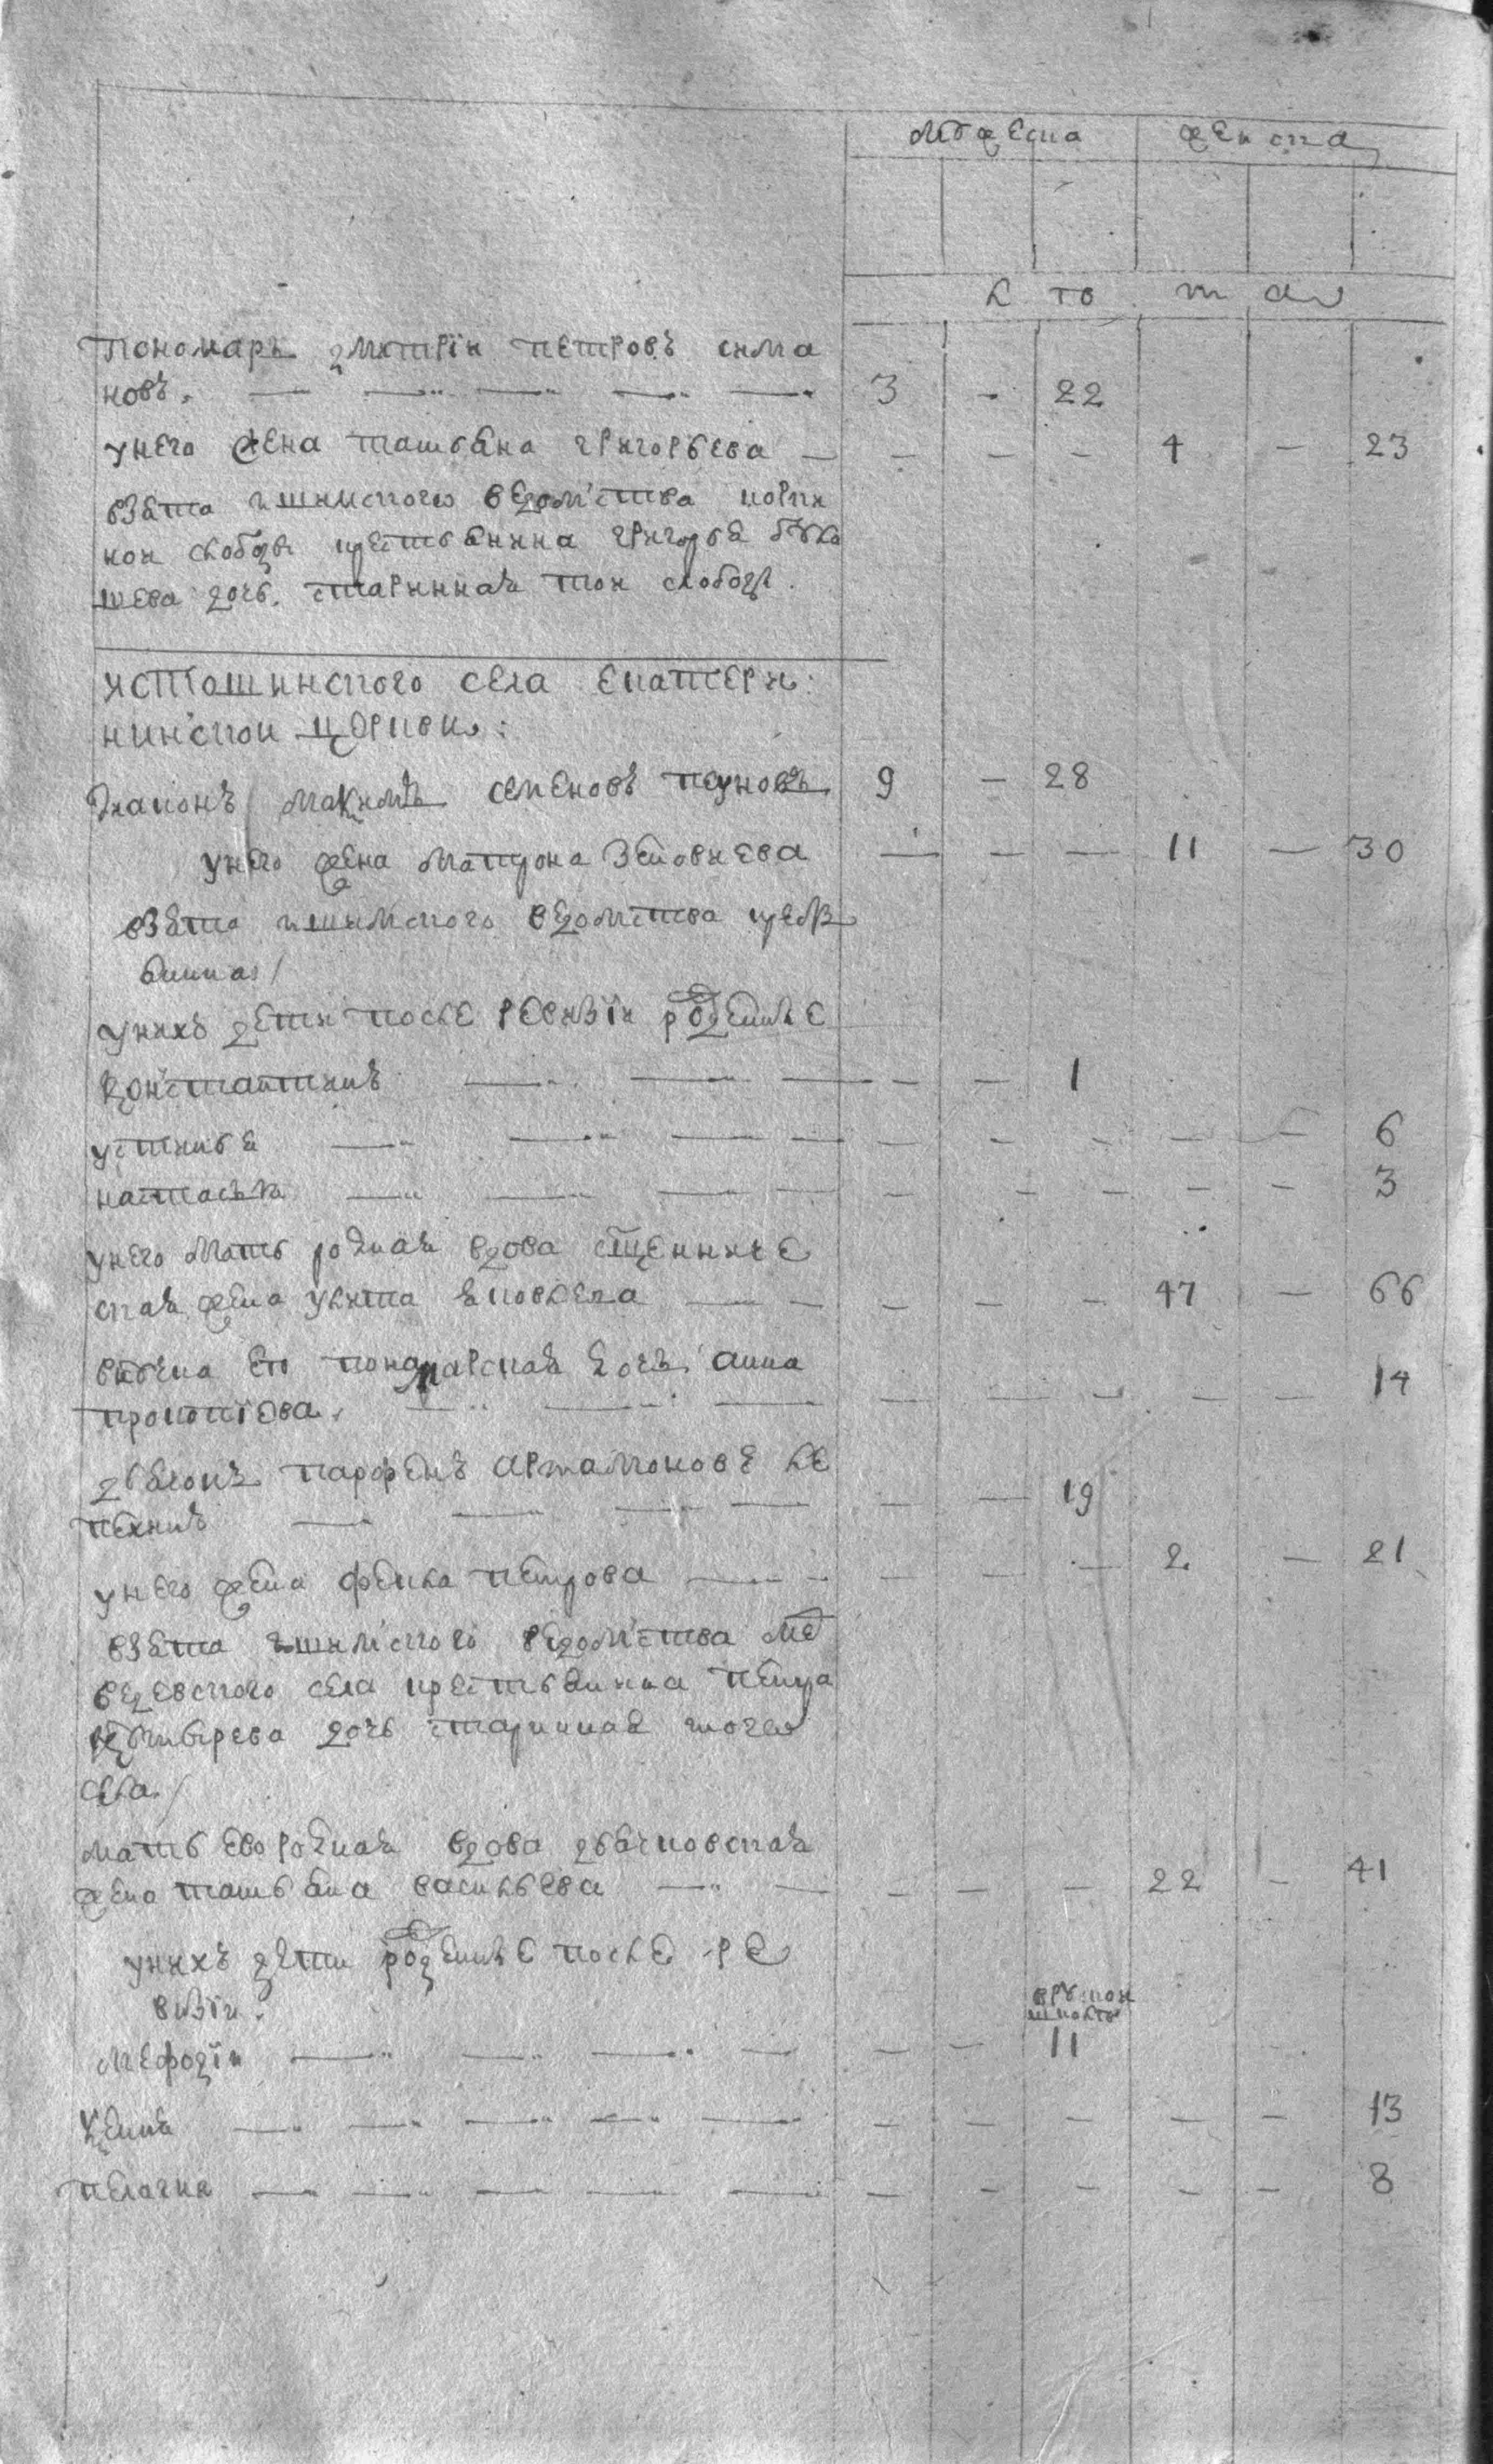 мужеска женска
лѣтами
пономарь дмитрiи петровъ сима
новъ. 3 - 22
унего жена татьѧна григорьева - - - - 4 - 23
взѧта ишимского ведомства коркн
нои слободы крестьѧнина григорьѧ
шева дочь. стариннаѧ тои слободы.
устошинского села екатери:
нинскои церкви:
дьѧконъ максимъ семеновъ 9 - 28
унего жена матрона - - - 11 - 30
взѧта ишимского ведомства крест
ьѧнка
унихъ дети после ревизiи рожденные
константинъ - - 1
устиньѧ - - - - - 6
настасьѧ - - - - - 3
унего мать роднаѧ вдова сщенниче
скаѧ жена улита ѧковлева - - - 47 - 66
внука ево пономарскаѧ дочь анна
прокопiева. - - - - - 14
дьѧчокъ парфенъ артамоновъ ле
пехинъ - - 19
унего жена фекла петрова - - - 2 - 21
взѧта ишимского ведомства ме
двѣдевского села крестьѧнина петра
дочь стариннаѧ того
села
мать ево роднаѧ вдова дьѧчковскаѧ
жена татьѧна васильева - - - 22 - 41
унихъ дети рожденные после ре
визiи.
мефодiи - - 11
ксениѧ - - - - - 13
пелагиѧ - - - - - 8